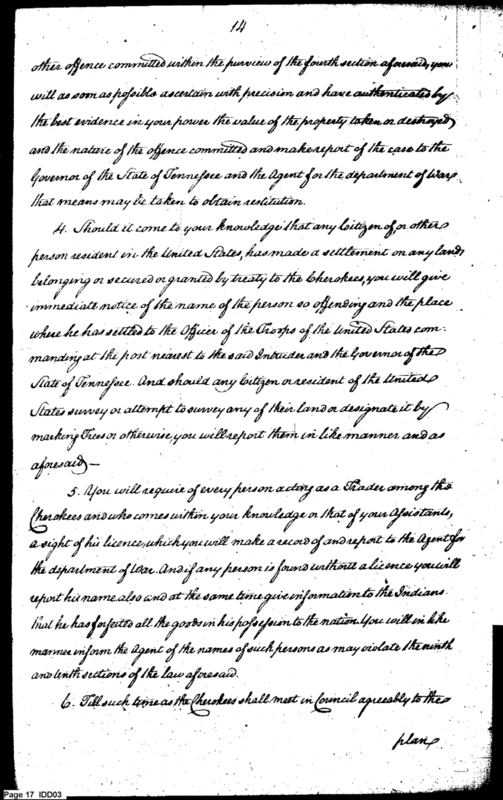 14
other offence committed within the purview of the fourth section aforesaid, you
will as soon as possible ascertain with precision and have authenticated by
the best evidence in your power the value of the property taken or destroyed
and the nature of the offence committed and make report of the case to the
Governor of the State of Tennessee and the Agent for the department of War
that means may be taken to obtain restitution.
4. Should it come to your knowledge that any Citizen of, or other
person resident in the United States, has made a settlement on any lands
belonging or secured or granted by treaty to the Cherokees, you will give
immediate notice of the name of the person so offending and the place
where he has settled to the Officer of the Troops of the United States com-
manding at the post nearest to the said Intruder and the Governor of the
State of Tennessee. And should any Citizen or resident of the United
States survey or attempt to survey any of their land or designate it by
marking Trees or otherwise, you will report them in like manner and as
aforesaid —
5. You will require of every person acting as a Trader among the
Cherokees and who comes within your knowledge or that of your Assistants,
a sight of his licence, which you will make a record of and report to the Agent for
the department of War. And if any person is found without a licence you will
report his name also and at the same time give information to the Indians
that he has forfeited all the goods in his possession to the nation. You will in like
manner inform the Agent of the names of such persons as may violate the ninth
and tenth sections of the law aforesaid.
6. Till such time as the Cherokees shall meet in Council agreeably to the
plan
Page 17 IDD03